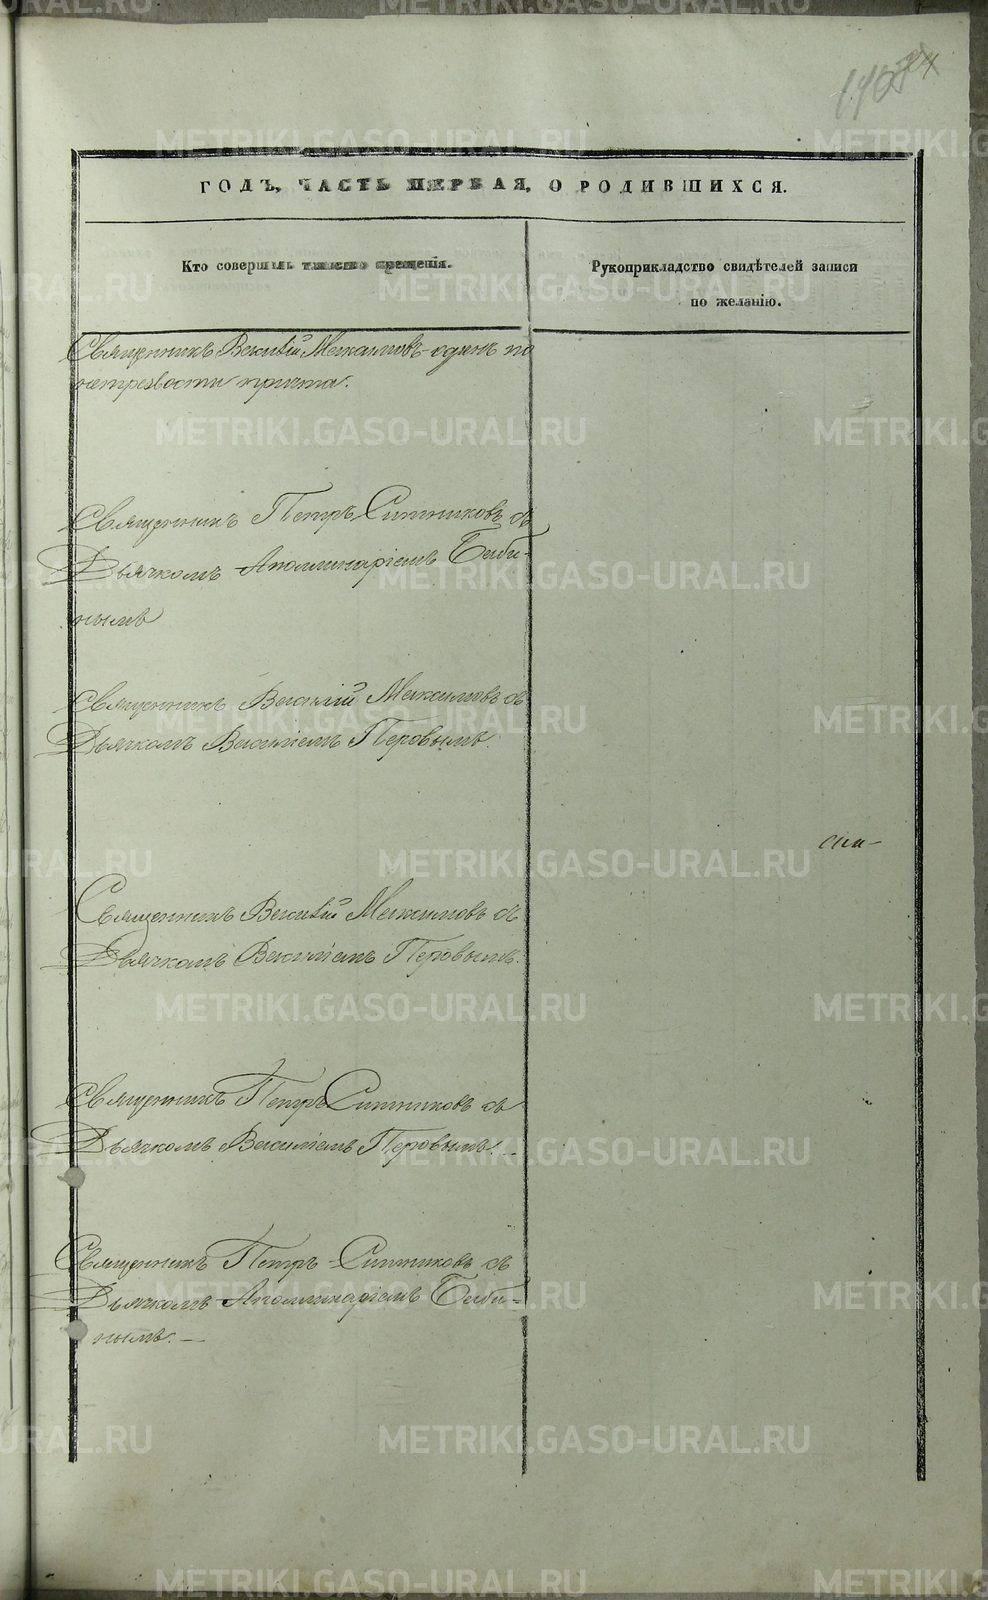 ГОДЪ, ЧАСТЬ ПЕРВАЯ, О РОДИВШИХСЯ.
Кто совершилъ таинство крещенія.
Рукоприкладство свидѣтелей записи
по желанію.
Священникъ Василій Максимовъ одинъ по
нетрезвости причта.
Священникъ Петръ Ситниковъ съ
Дьячкомъ Аполлинаріемъ Баби-
нымъ
Священникъ Василій Максимовъ съ
Дьячкомъ Василіемъ Перовымъ.
Священникъ Василій Максимовъ съ
Дьячкомъ Василіемъ Перовымъ.
Священникъ Петръ Ситниковъ съ
Дьячкомъ Василіемъ Перовымъ. –
Священникъ Петръ Ситниковъ съ
Дьячкомъ Аполлинаріемъ Баби-
нымъ. –
METRIKI.GASO-URAL.RU